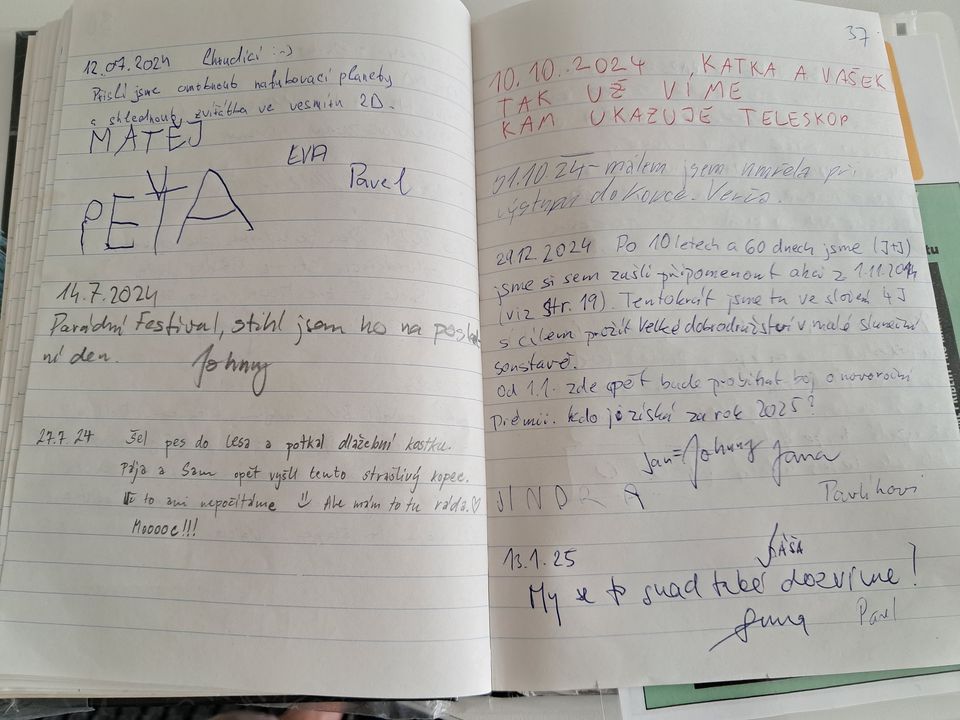 12.07.2024 Chrudíci :-)
Přišli jsme omrknout nafukovací planety
a shlédnout zvířátka ve vesmíru 2D.
MATĚJ
EVA
Pavel
PEŤA
14.7.2024
Parádní Festival, stihl jsem ho na posled-
ní den. Johny
27.7 24 Šel pes do lesa a potkal dlažební kostku.
Pája a Sam opět vyšli tento strašlivý kopec.
to ani nepočítáme Ale mám to tu ráda. ♡
Moooc!!!
37
10.10.2024 KATKA A VAŠEK
TAK UŽ VÍME
KAM UKAZUJE TELESKOP
01.10.24 - málem jsem umřela při
výstupu do kopce. Verča.
29.12.2024 Po 10 letech a 60 dnech jsme (J+J)
jsme si sem zašli připomenout akci z 1.11.2014
(viz str. 19). Tentokrát jsme tu ve složení 4J
s cílem prožít Velké dobrodružství v malé sluneční
soustavě.
Od 1.1. zde opět bude probíhat boj o novoroční
prémii. kdo ji získá za rok 2025?
Jan = Johny Jana
JINDRA Pavlíkovi
13.1.25 SÁŠA
My se to snad také dozvíme!
Pavel